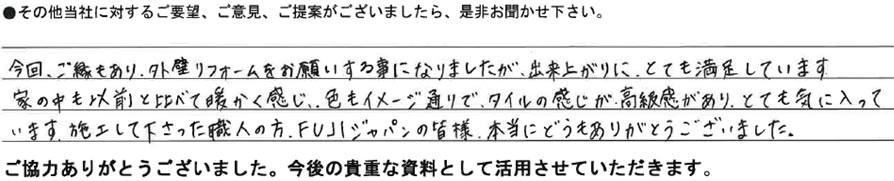 ●その他当社に対するご要望、ご意見、ご提案がございましたら、是非お聞かせ下さい。
今回、ご縁もあり、外壁リフォームをお願いする事になりましたが、出来上がりに、とても満足しています
家の中も以前と比べて暖かく感じ、色もイメージ通りで、タイルの感じが、高級感があり、とても気に入って
います。施工して下さった職人の方、FUJIジャパンの皆様、本当にどうもありがとうございました。
ご協力ありがとうございました。今後の貴重な資料として活用させていただきます。